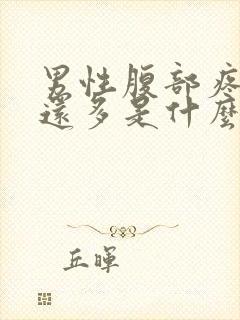 男性腹部疼
還多是什麼
丘暉